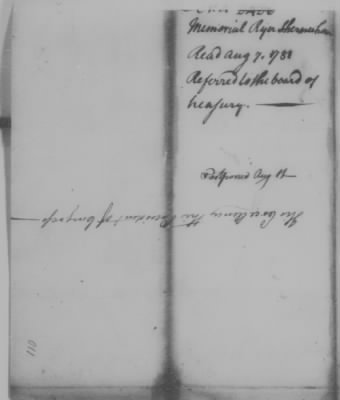 Memorial Ryer Schermerhorn
Read Aug 7. 1788
Referred to the board of
treasury.
Postponed Aug 18
His Excellency The President of Congress
110